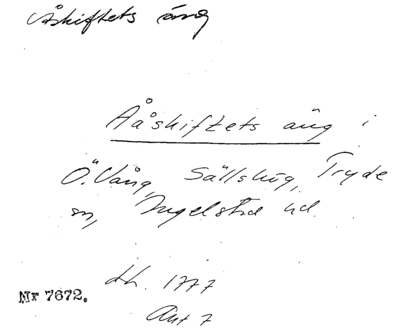 Åskiftets äng
Aåskiftets äng i
Ö. Vång, Sällshög, Tryde
sn, Ingelstad hd.
Lh. 1777
Nr 7672.
Akt 7